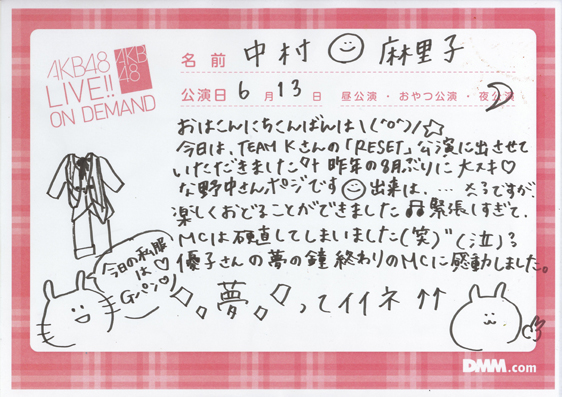 AKB48
LIVE!!
ON DEMAND
AKB
48
名前 中村 麻里子
公演日 6月13日 昼公演・おやつ公演・夜公演
おはこんにちこんばんは\(^o^)/☆
今日は、TEAM Kさんの「RESET」公演に出させて
いただきました 昨年の8月ぶりに大スキ♡
な野中さんポジです 出来は、… ですが、
楽しくおどることができました♫緊張しすぎて、
MCは硬直してしまいました(笑)(泣)
優子さんの夢の鐘終わりのMCに感動しました。
今日の私服
は♡
Gパン♡
夢 ってイイネ↑↑
DMM.com